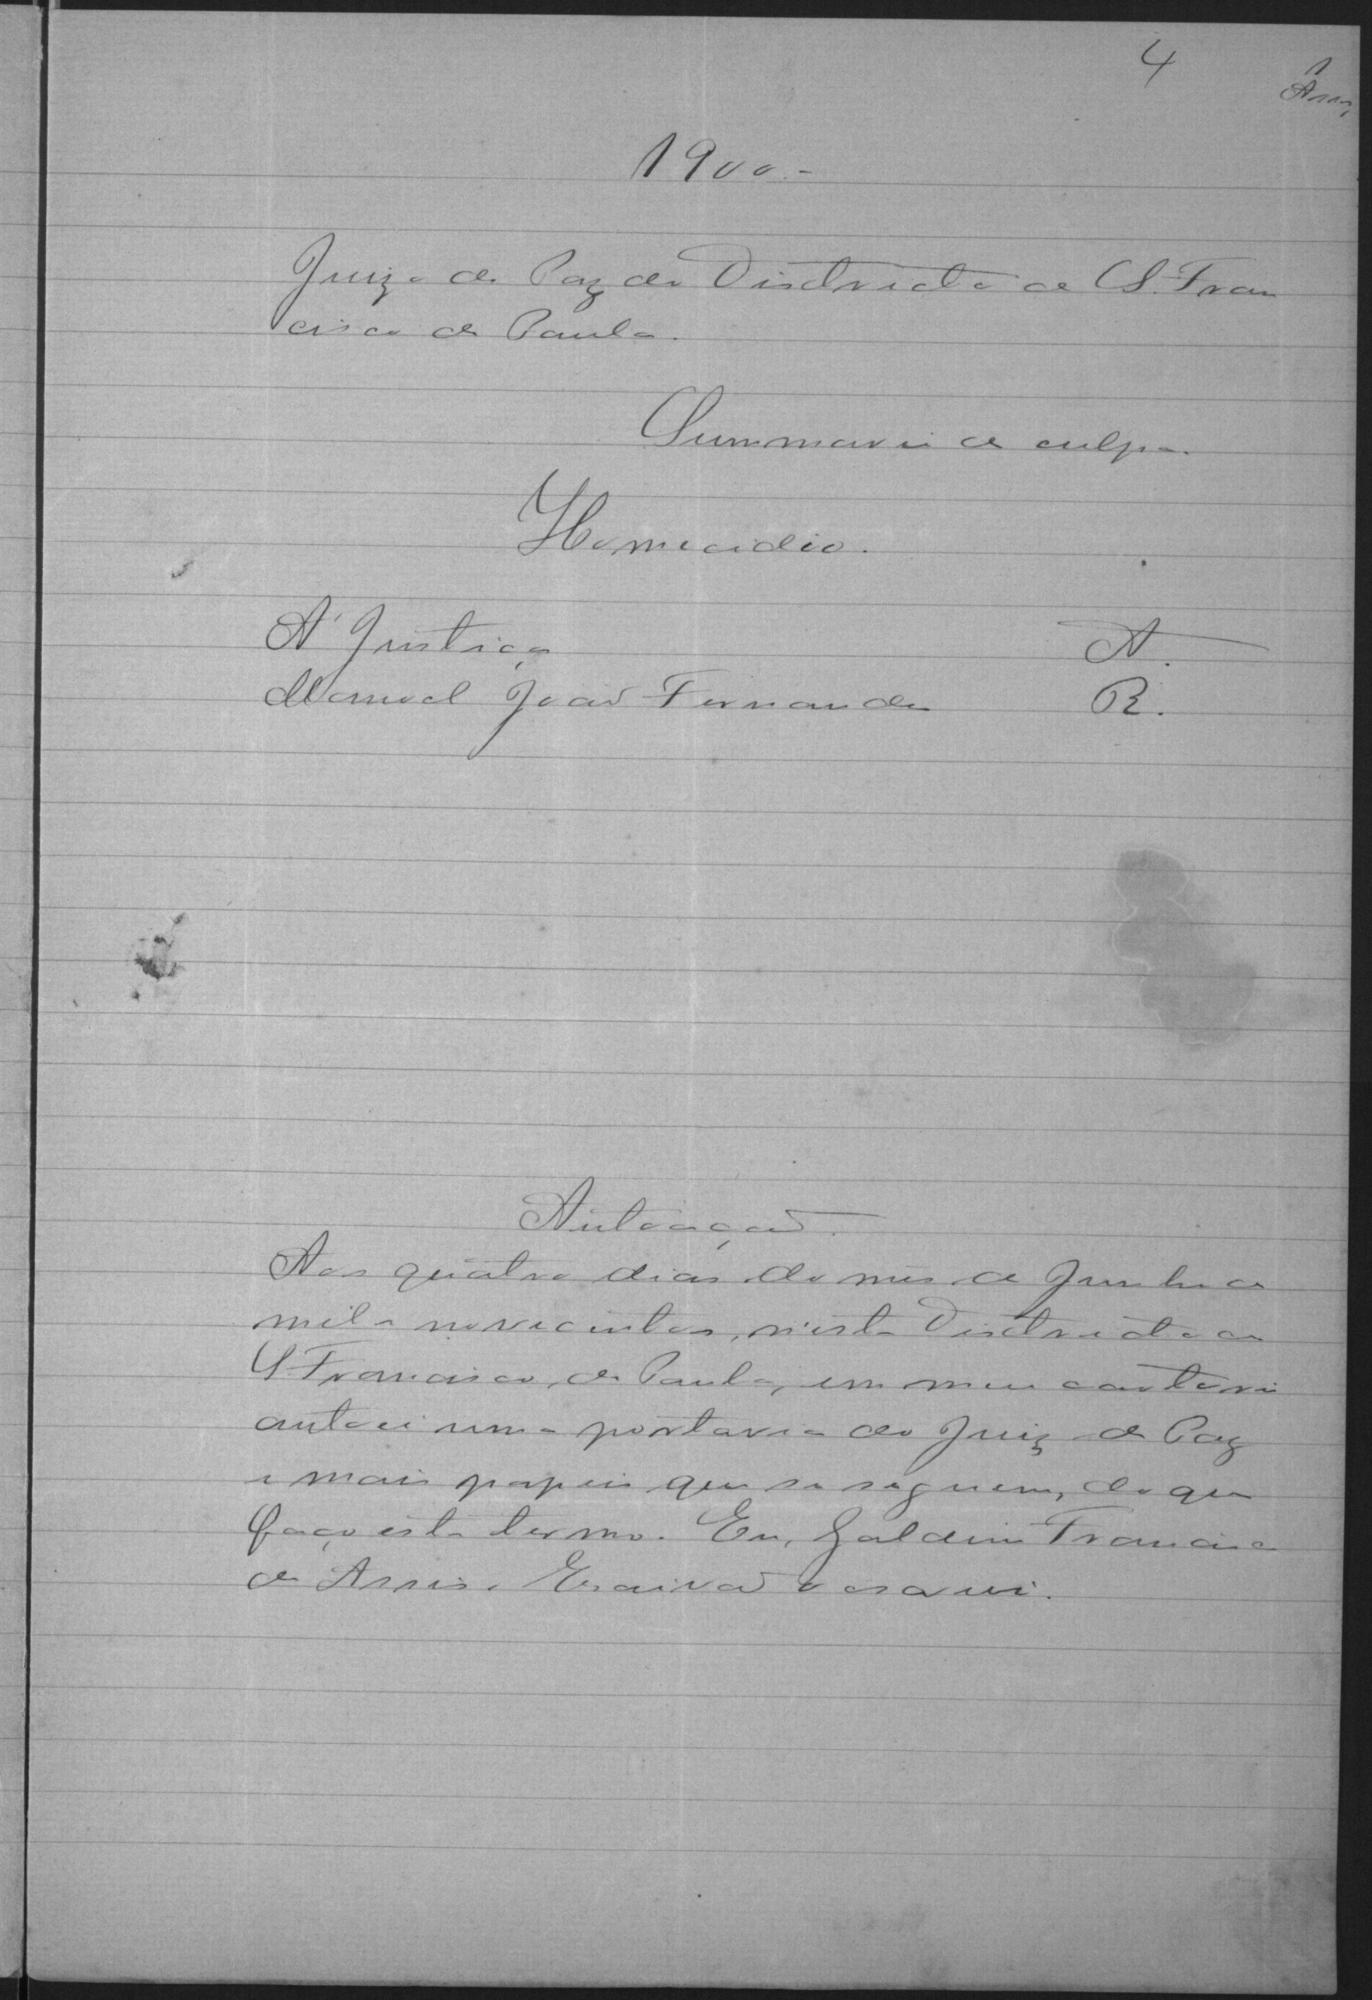 4
1
Assis
1900.-
Juizo de Paz do Districto de S. Fran
cisco de Paula.
Summario de culpa.
Homecidio.
A' Justiça A.
Manoel João Fernandes R.
Autoação.
Aos quatro dias do mes de Junho de
mil e novecentos, n'esta Districto de
S. Francisco de Paula, em meu cartorio
autoei uma portaria do Juiz de Paz
e mais papeis que se seguem, do que
faço este termo. Eu, Galdino Francisco
de Assis, Escrivão o escrevi.